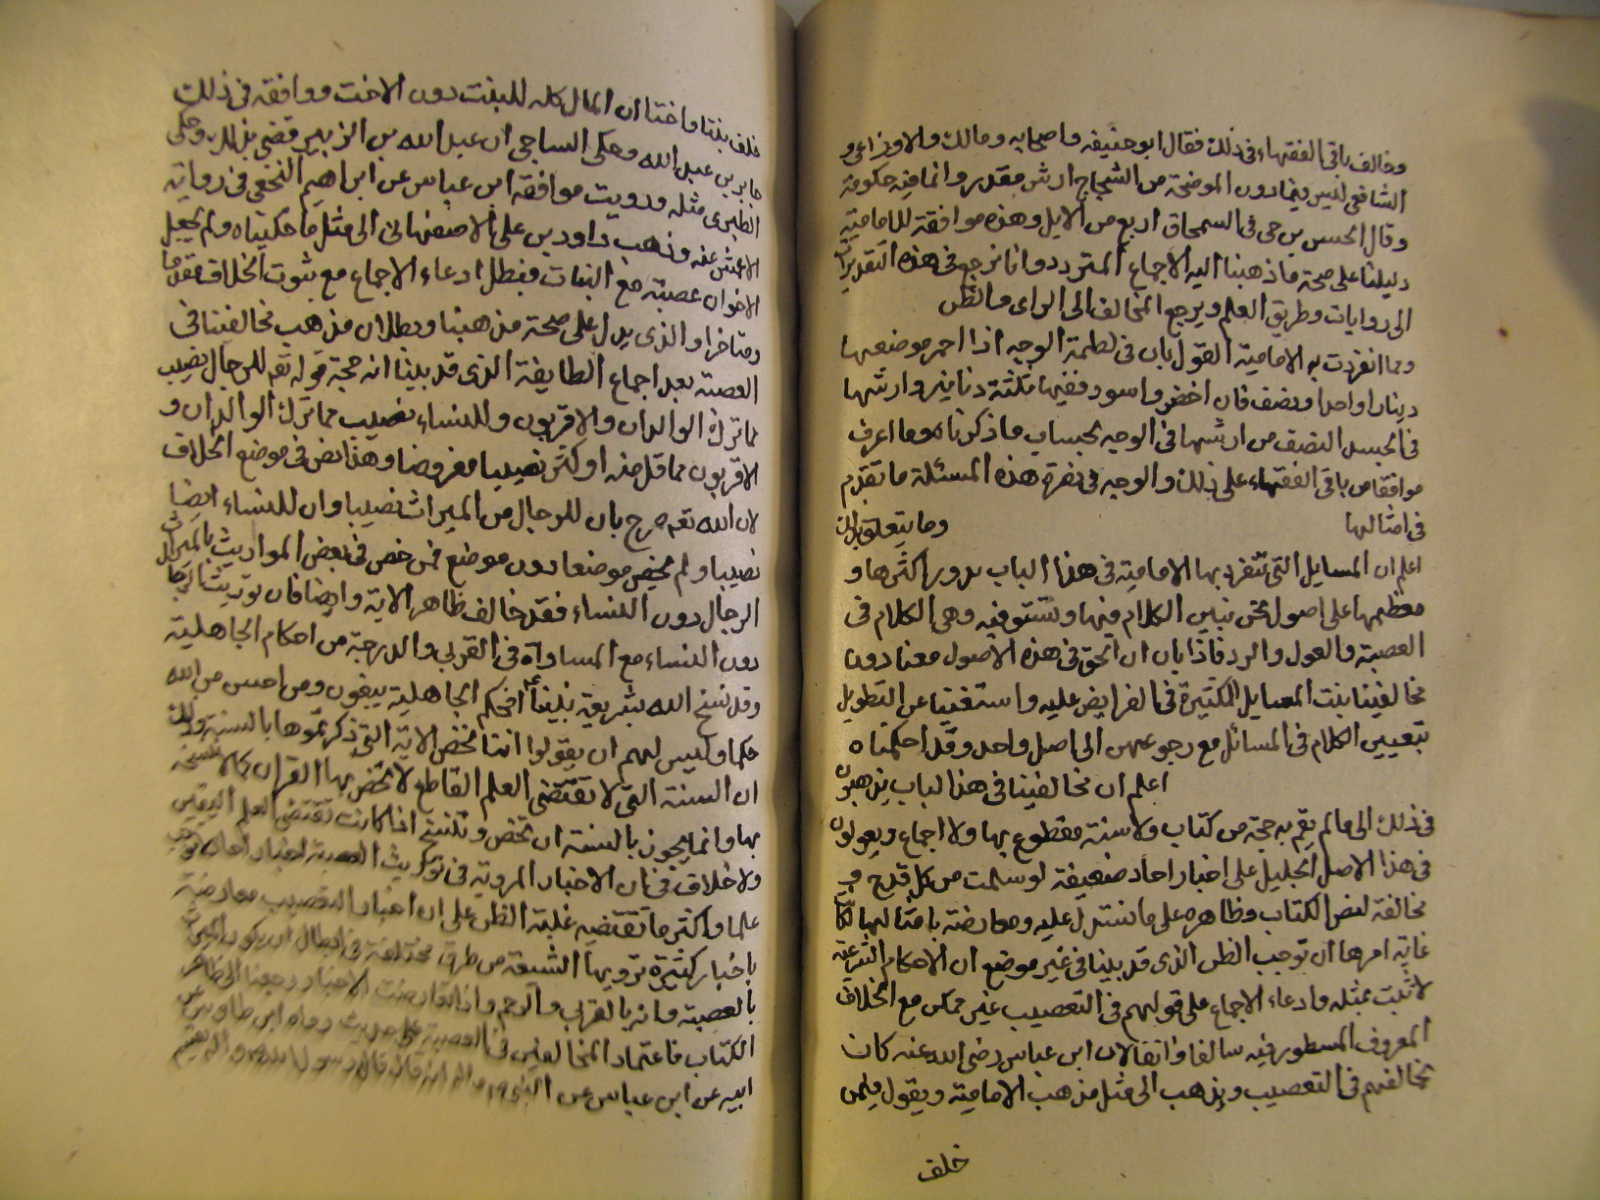 وخالف باقي الفقهاء في ذلك فقال ابو حنيفه واصحابه ومالك والاوزاعي و
الشافعي ليس فيما دون الموضحة من الشجاج ارش مقدر وانما فيه حكومة
وقال الحسن بن حي في السمحاق اربع من الابل وهذه موافقة للامامية
دليلنا على صحة ما ذهبنا اليه الاجماع المتردد وانا نرجع في هذه التقديرات
الى روايات وطريق العلم ويرجع المخالف الى الراى والظن
ومما انفردت به الامامية القول بان في لطمة الوجه اذا احمر موضعها
دينارا واحدا ونصف فان اخضر واسود ففيها ثلثة دنانير وارشها
في الجسد النصف من ارشها في الوجه بحساب ما ذكرناه وما اعرف
موافقا من باقي الفقهاء على ذلك والوجه في نصرة هذه المسئلة ما تقدم
في امثالها وما يتعلق بذلك
اعلم ان المسايل التي تنفرد بها الامامية في هذا الباب يدور اكثرها و
معظمها على اصول نحن نبين الكلام فيها ونستوفيه وهي الكلام في
العصبة والعول والرد فاذا بان ان الحق في هذه الاصول معنا دون
مخالفينا بنت المسايل الكثيرة في الفرايض عليه واستغنينا عن التطويل
بتعيين الكلام في المسائل مع رجوعهن الى اصل واحد وقد احكمناه
اعلم ان مخالفينا في هذا الباب يذهبون
في ذلك الى ما لم يقم به حجة من كتاب ولا سنة مقطوع بها ولا اجماع ويعولون
في هذا الاصل الجليل على اخبار احاد ضعيفة لو سلمت من كل قدح و
مخالفة لنص الكتاب وظاهره على ما سنتدل عليه ومعارضة بامثالها لكا
غاية امرها ان توجب الظن الذي قد بينا في غير موضع ان الاحكام الشرعية
لا تثبت بمثله وادعاء الاجماع على قولهم في التعصيب غير ممكن مع الخلاف
المعروف المسطور فيه سالفا وانفا لان ابن عباس رضى الله عنه كان
يخالفهم في التعصيب ويذهب الى مثل مذهب الامامية ويقول فيمن
خلف
خلف بنتا واختا ان المال كله للبنت دون الاخت ووافقه في ذلك
جابر بن عبد الله وحكى الساجي ان عبد الله بن الزبير قضى بذلك وحكى
الطبرى مثله ورويت موافقة ابن عباس عن ابراهيم النخعي في رواية
الاعمش عنه وذهب داود بن علي الاصفهاني الى مثل ما حكيناه ولم يجعل
الاخوان عصبة مع البنات فبطل ادعاء الاجماع مع ثبوت الخلاف متقدما
ومتاخرا والذي يدل على صحة مذهبنا وبطلان مذهب مخالفينا في
العصبة بعد اجماع الطايفة الذي قد بينا انه حجة قوله تعم للرجال نصيب
مما ترك الوالدان والاقربون وللنساء نصيب مما ترك الوالدان و
الاقربون مما قل منه او كثر نصيبا مفروضا وهذا نص في موضع الخلاف
لان الله تعم صرح بان للرجال من الميراث نصيبا وان للنساء ايضا
نصيبا ولم يخص موضعا دون موضع فمن خص في بعض المواريث بالميراث
الرجال دون النساء فقد خالف ظاهر الاية وايضا فان توريث الرجا
دون النساء مع المساواة في القربى والدرجة من احكام الجاهلية
وقد نسخ الله بشريعة نبينا افحكم الجاهلية يبغون ومن احسن من الله
حكما وليس لهم ان يقولوا اننا نخص الاية التي ذكرتموها بالسنة وذلك
ان السنة التي لا تقتضي العلم القاطع لا يخص بها القران كما لا ننسخه
بها وانما يجوز بالسنة ان يخص وينسخ اذا كانت تقتضي العلم اليقين
ولا خلاف في ان الاخبار المروية في توريث العصبة اخبار احاد لا توجب
علما واكثر ما تقتضيه غلبة الظن على ان اخبار التعصيب معارضة
باخبار كثيرة ترويها الشيعة من طرق مختلفة في ابطال ان يكون الميراث
بالعصبة وانه بالقربى والرحم واذا تعارضت الاخبار رجعنا الى ظاهر
الكتاب فاعتماد المخالفين في العصبة على حديث رواه ابن طاووس عن
ابيه عن ابن عباس عن النبي